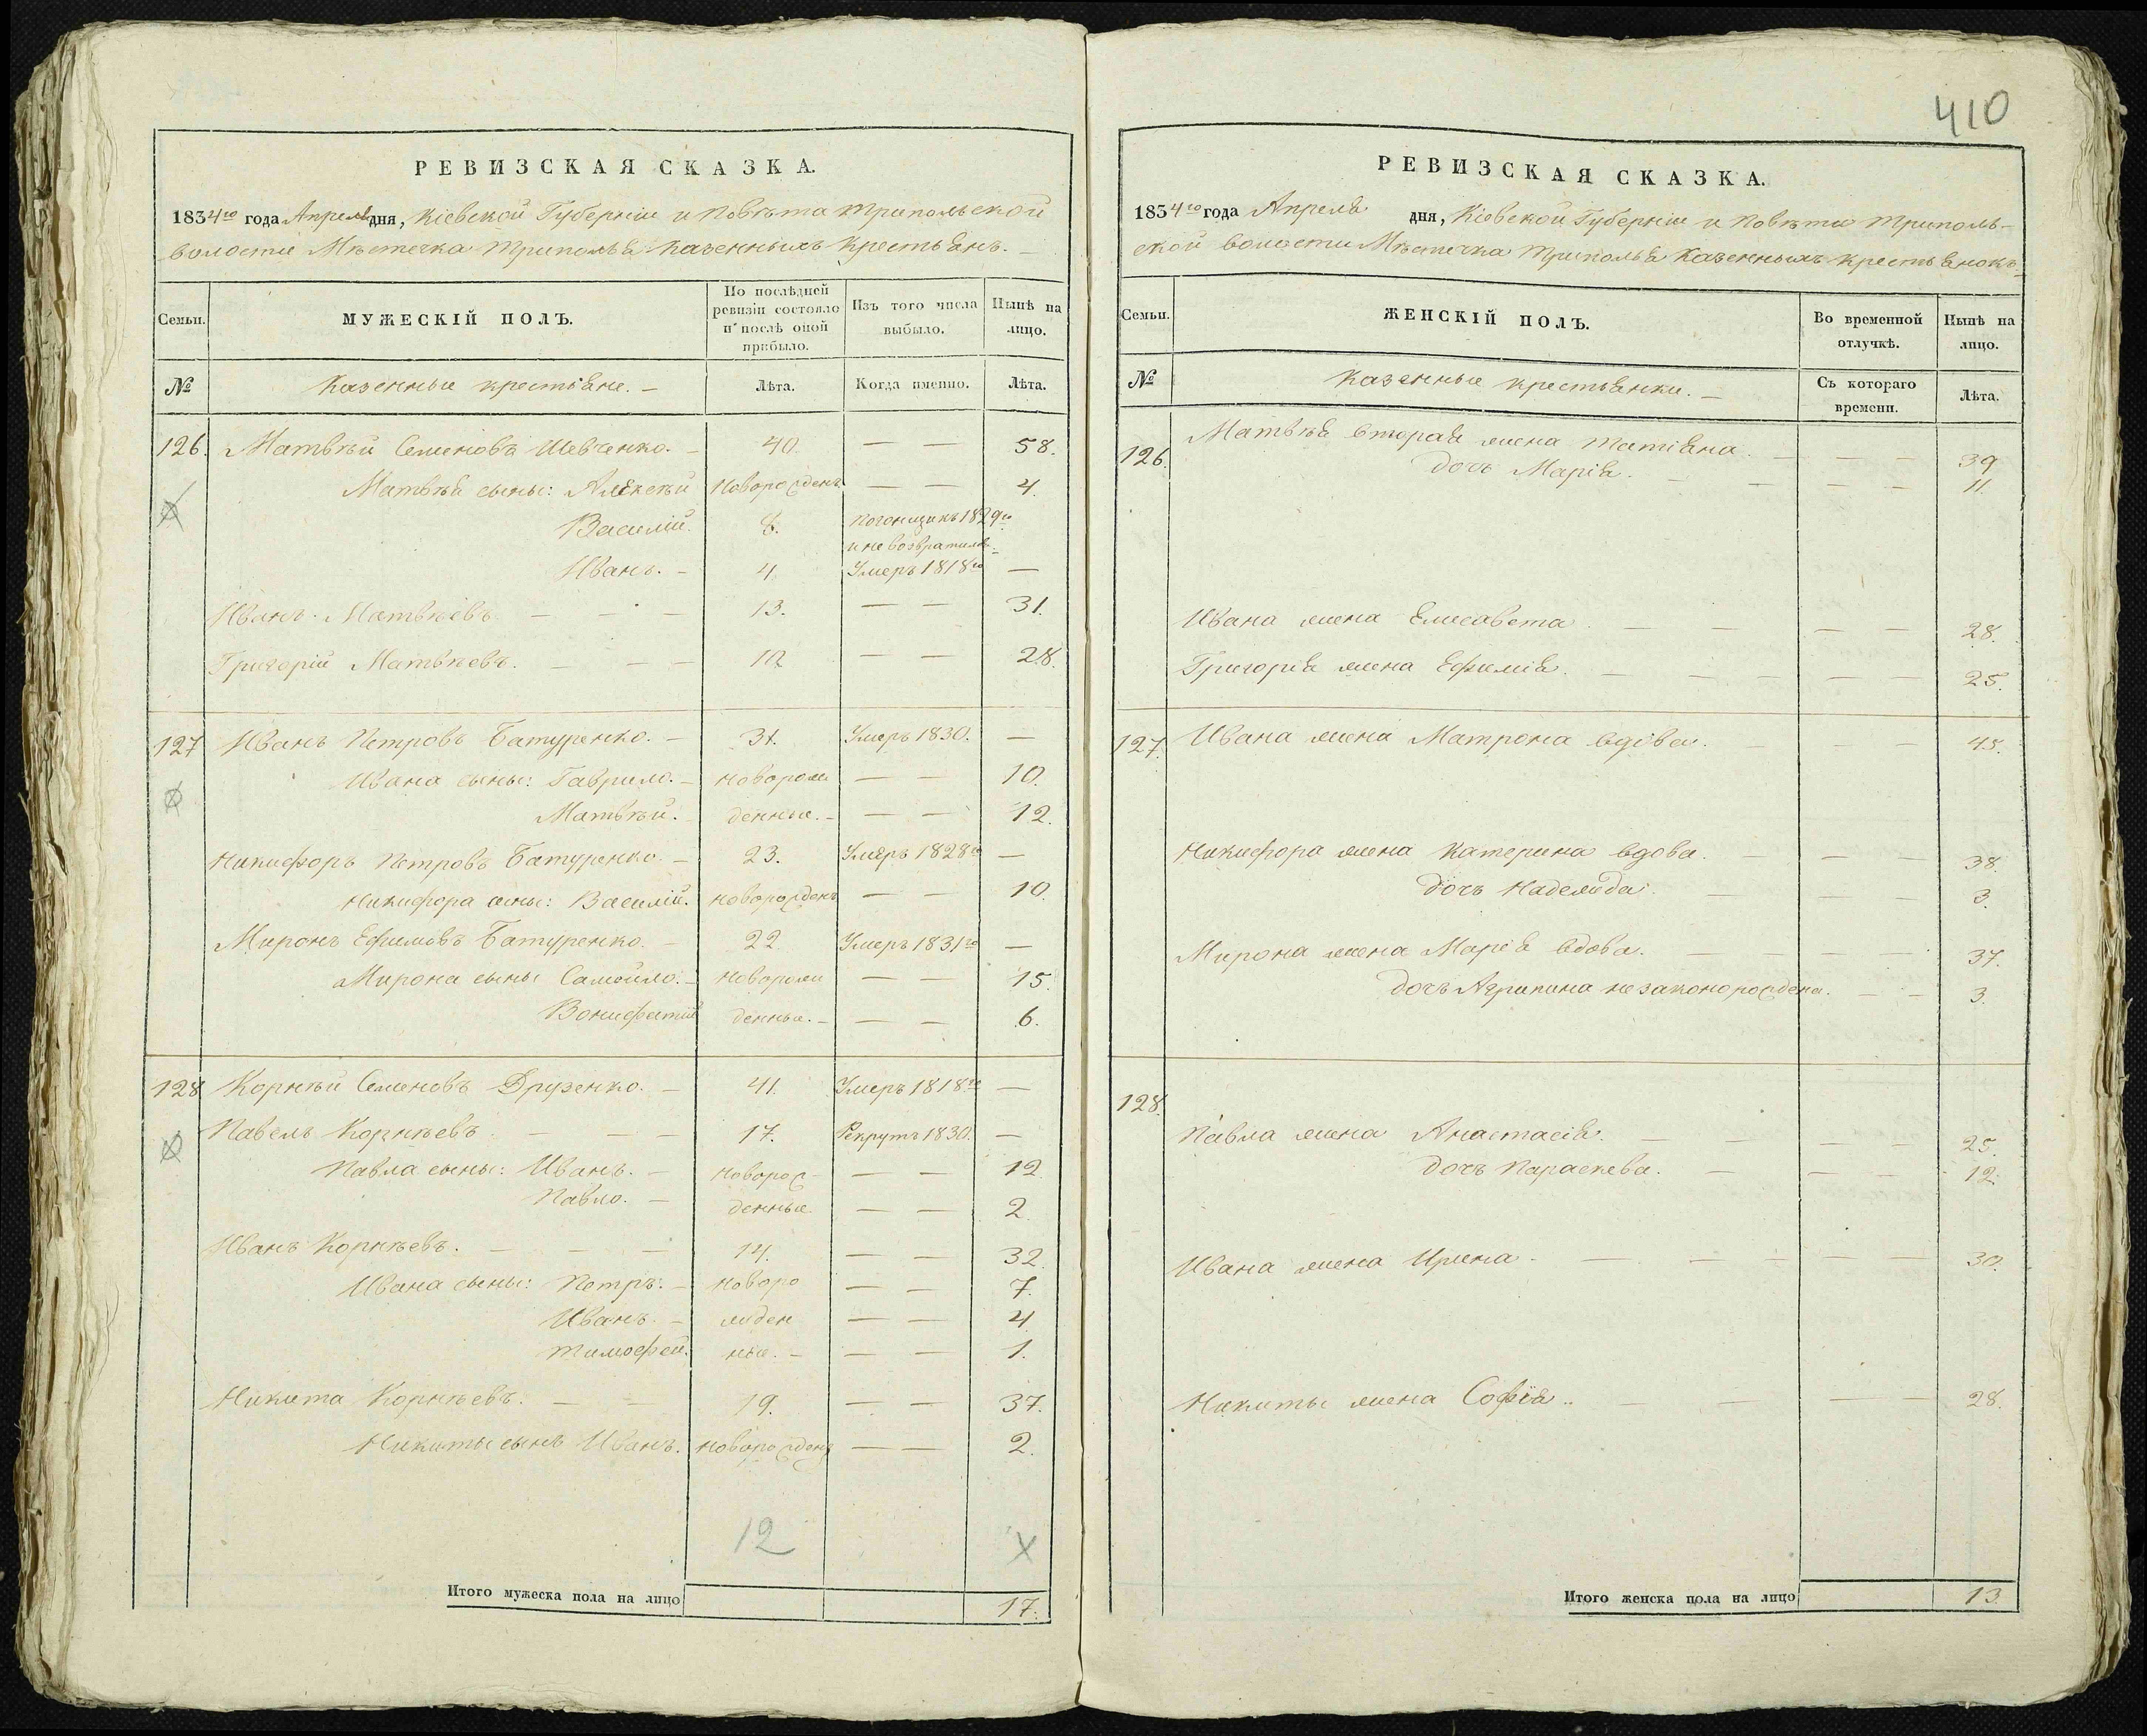 РЕВИЗСКАЯ СКАЗКА.
1834го года Апреля дня, Кіевской Губерніи и Повѣта Трипольской
волости Мѣстечка Триполья Казенныхъ Крестьянъ.
Семьи.
МУЖЕСКІЙ ПОЛЪ.
По послѣдней ревизіи состояло и послѣ оной прибыло.
Изъ того числа выбыло.
Нынѣ на лицо.
№
Казенные крестьяне.
Лѣта.
Когда именно.
Лѣта.
126. Матвѣй Семеновъ Шевченко. — 40. — — 58.
Матвѣя сыны: Алексѣй Новорожденъ — — 4.
Василій. 8. Погонщикъ 1829го
и не возвратился.
Иванъ. — 4. Умеръ 1818го —
Иванъ Матвѣевъ — — — 13. — — 31.
Григорій Матвѣевъ. — — — 10. — — 28.
127 Иванъ Петровъ Батуренко. — 31. Умеръ 1830. —
Ивана сыны: Гаврило. — новорож — — 10.
Матвѣй. денные. — — — 12.
Никифоръ Петровъ Батуренко. — 23. Умеръ 1828го —
Никифора сыны: Василій. новорожденъ — — 10.
Миронъ Ефимовъ Батуренко. — 22. Умеръ 1831го —
Мирона сыны Самойло. — новорож — — 15.
Вонифатій денные. — — — 6.
128 Корнѣй Семеновъ Друзенко. — 41. Умеръ 1818го —
Павелъ Корнѣевъ. — — — 17. Рекрутъ 1830. —
Павла сыны: Иванъ. — новорож- — — 12
Павло. — денные. — — 2.
Иванъ Корнѣевъ. — — — 14. — — 32.
Ивана сыны: Петръ. — новоро — — 7.
Иванъ. — жден — — 4
Тимофей. ные. — — — 1.
Никита Корнѣевъ. — — 19. — — 37.
Никиты сынъ Иванъ. новорожденъ — — 2.
12 X
Итого мужеска пола на лицо 17.
410
РЕВИЗСКАЯ СКАЗКА.
1834го года Апреля дня, Кіевской Губерніи и Повѣта Триполь-
ской волости Мѣстечка Триполья Казенныхъ крестьянокъ
Семьи.
ЖЕНСКІЙ ПОЛЪ.
Во временной отлучкѣ.
Нынѣ на лицо.
№
Казенные крестьянки. —
Съ котораго времени.
Лѣта.
126. Матвѣя вторая жена Татіяна. — — — 39
дочь Марія. — — — — 11.
Ивана жена Елисавета. — — — — 28.
Григорія жена Ефимія. — — — — — 25.
127. Ивана жена Матрона вдова. — — — 45.
Никифора жена Катерина вдова. — — — 38.
дочь Надежда. — — — 3.
Мирона жена Марія вдова. — — — — 37.
дочь Агрипина незаконорождена. — — 3.
128.
Павла жена Анастасія. — — — — 25.
дочь Параскева. — — — 12.
Ивана жена Ирина. — — — — — 30.
Никиты жена Софія.. — — — — 28.
Итого женска пола на лицо 13.